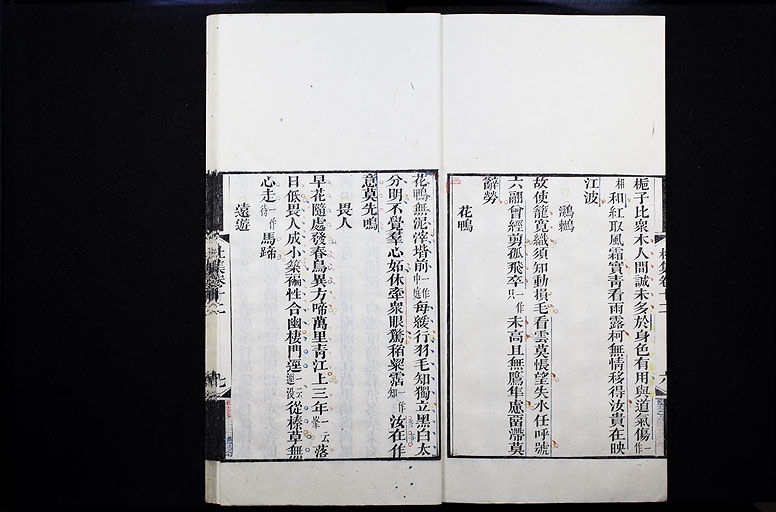 梔子比衆木人間誠未多於身色有用與道氣傷一作
相和紅取風霜實青看雨露柯無情移得汝貴在映
江波
鸂鶒
故使籠寬織須知動損毛看雲莫悵望失水任呼號
六翮曾經剪孤飛卒一作只未高且無鷹隼慮留滯莫
辭勞
花鴨
花鴨無泥滓堦前一作中庭每緩行羽毛知獨立黑白太
分明不覺羣心妬休牽衆眼驚稻粱霑一作知汝在作
意莫先鳴
畏人
早花隨處發春鳥異方啼萬里青江上三年一云峯落
日低畏人成小築褊性合幽棲門逕一云逕沒從榛草無
心走一作待馬蹄
遠遊
杜集卷十二
九
杜集卷十二